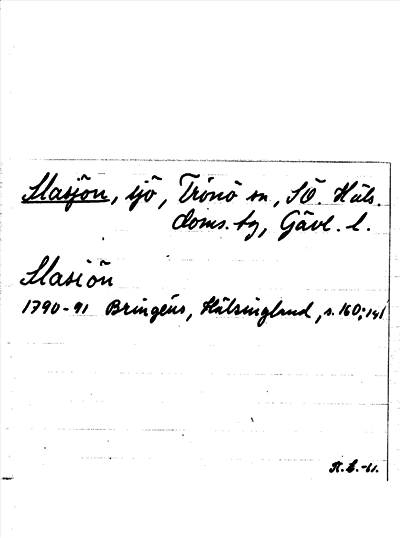 Slasjön, sjö, Trönö sn, SÖ. Häls.
doms. tg, Gävl. l.
Slasiön
1790-91 Bringéus, Hälsingland, s. 160; 141
R.E.-61.